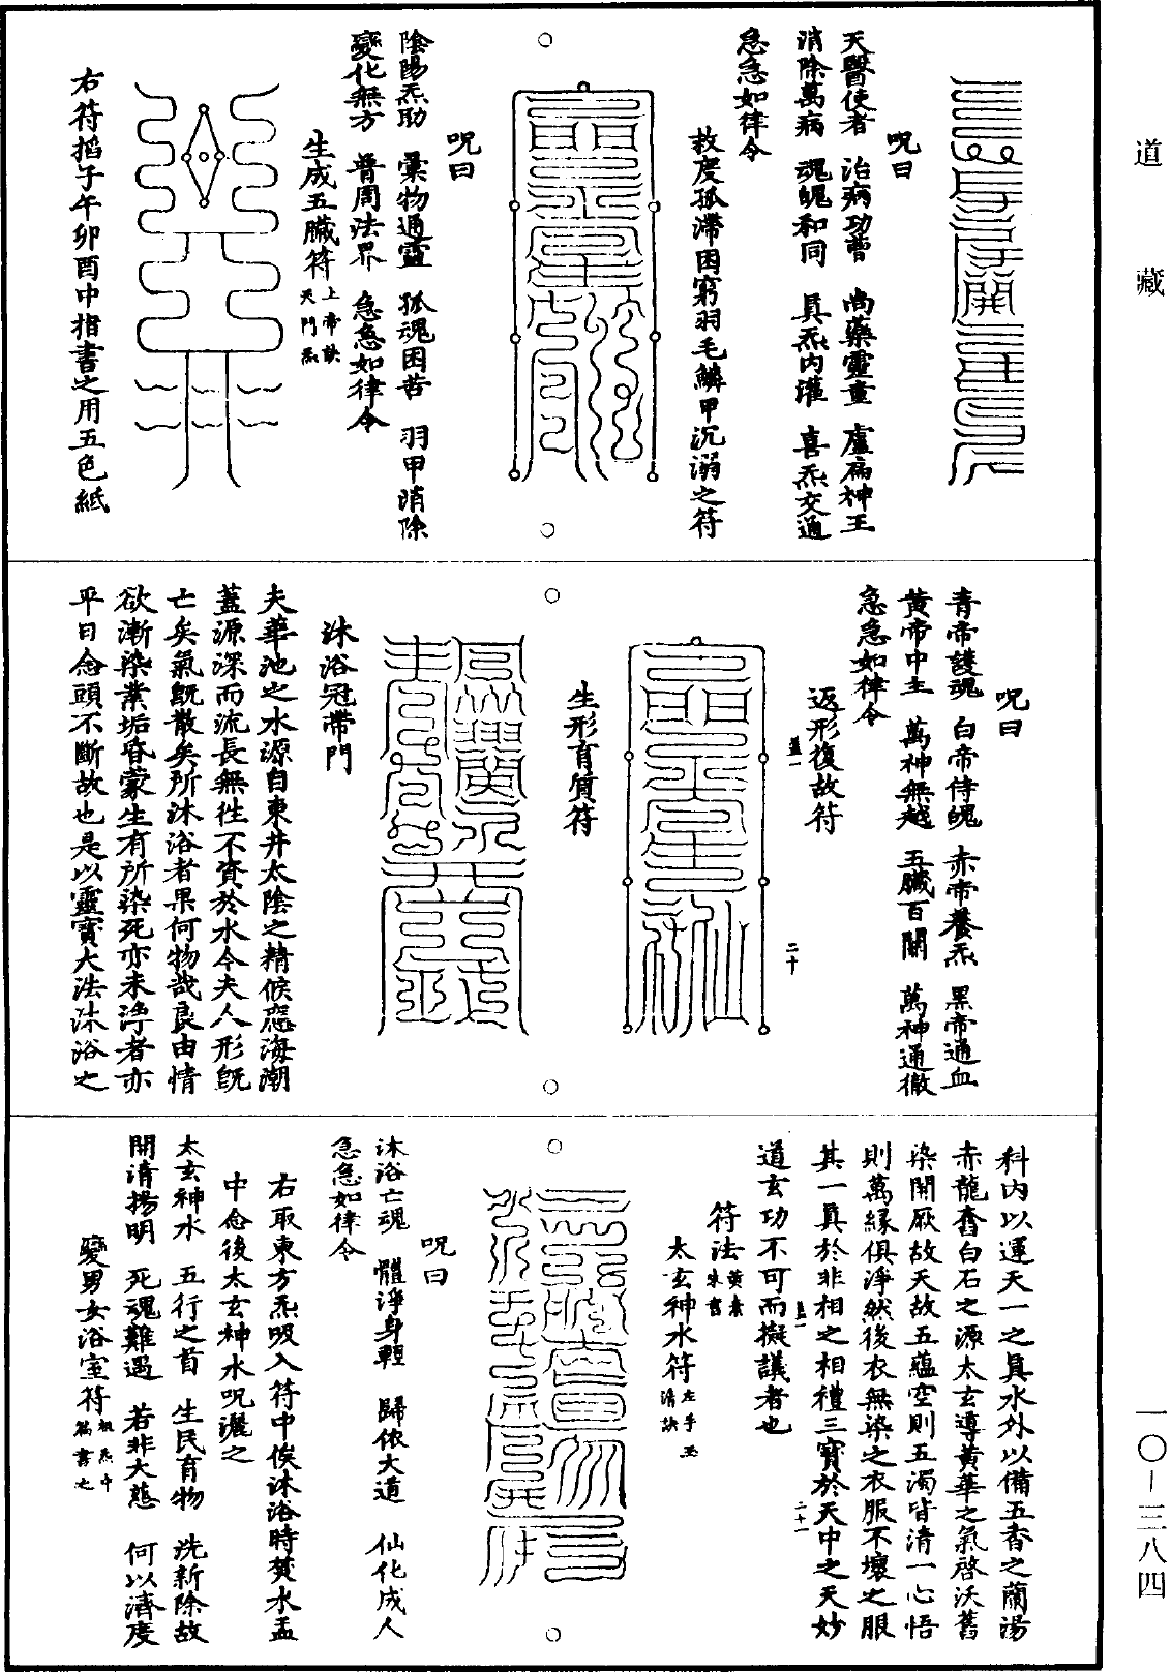 道藏
咒曰
天醫使者　治病功曹　尚藥靈童　盧扁神王
消除萬病　魂魄和同　真炁內灌　喜炁交通
急急如律令
救度孤滯困窮羽毛鱗甲沉溺之符
咒曰
陰陽炁助　彙物通靈　孤魂困苦　羽甲消除
變化無方　普周法界　急急如律令
生成五臟符上帝訣天門炁
右符掐子午卯酉中指書之用五色紙
咒曰
青帝護魂　白帝侍魄　赤帝養炁　黑帝通血
黃帝中主　萬神無越　五臟百關　萬神通徹
急急如律令
返形復故符
二十
生形育質符
沐浴冠帶門
夫華池之水源自東井太陰之精候應海潮
蓋源深而流長無往不資於水令夫人形既
亡矣氣既散矣所沐浴者果何物哉良由情
欲漸染業垢昏蒙生有所染死亦未淨者亦
平日念頭不斷故也是以靈寶大法沐浴之
科內以運天一之真水外以備五香之蘭湯
赤龍奮白石之源太玄導黃華之氣啓沃舊
染開厥故天故五蘊空則五濁皆清一心悟
則萬緣俱淨然後衣無染之衣服不壞之服
其一真於非相之相禮三寶於天中之天妙
二十一
道玄功不可而擬議者也
符法黃素朱書
太玄神水符左手玉清訣
咒曰
沐浴亡魂　體淨身輕　歸依大道　仙化成人
急急如律令
右取東方炁吸入符中俟沐浴時焚水盂
中念後太玄神水咒灑之
太玄神水　五行之首　生民育物　洗新除故
開清揚明　死魂難遇　若非大慈　何以濟度
變男女浴室符祖炁中篇書之
一〇－三八四